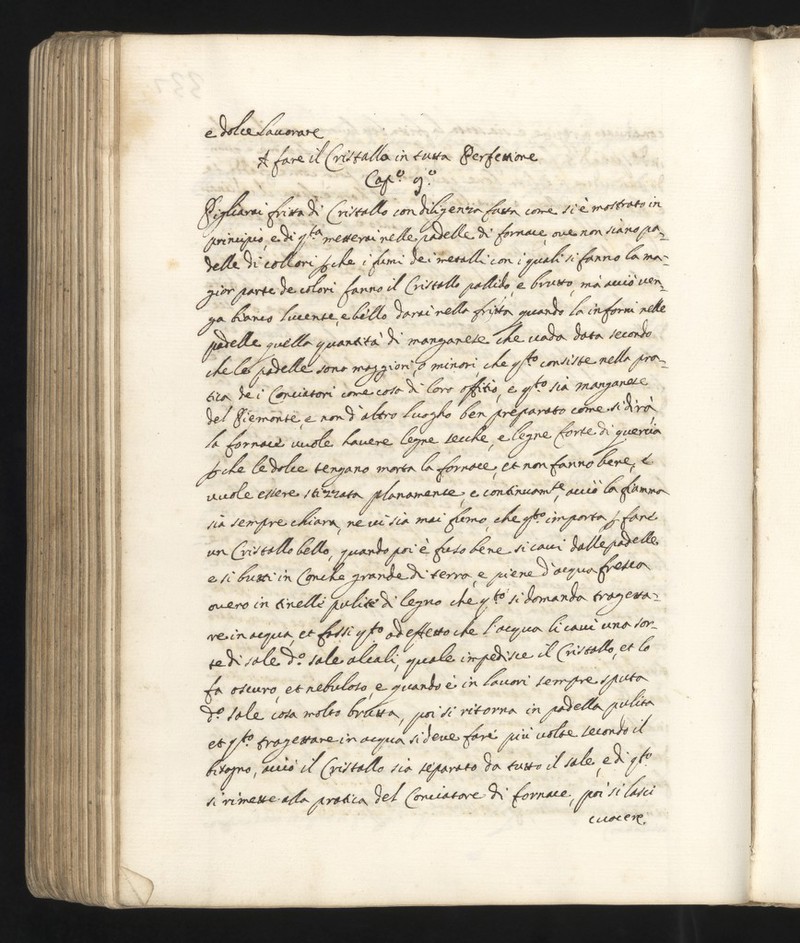 e dolce lauorare
A fare il Cristallo in tutta Perfettione
Cap.º 9.º
Pigliarai fritta di Cristallo con diligenza fatta come si è mostrato in
principio, e di q.ta metterai nelle padelle di fornace, oue non siano pa-
delle di collori p che i fumi dei metalli con i quali si fanno la ma-
gior parte de colori fanno il Cristallo pallido, e brutto, mà acciò uen-
ga bianco lucente, e bello darai nella fritta quando la inforni nelle
padelle quella quantità di manganese che uada data secondo
che le padelle sono maggiori, ò minori, che q.to consiste nella pra-
tica de i Conciatori come cosa di loro offitio, e q.to sia manganese
del Piemonte, e non d'altro luogho ben preparato come si dirà,
la fornace uuole hauere legne secche, e legne forte di quercia
p che le dolce tengano morta la fornace, et non fanno bene, e
uuole essere stizzata planamente, e continuam.te, acciò la fiamma
sia sempre chiara, ne ui sia mai fumo, che q.to importa p fare
un Cristallo bello, quando poi è fuso bene si caui dalle padelle
e si butti in Conche grande di terra, e piene d'acqua fresca
ouero in tinelli pulite di legno che q.to si domanda tragetta-
re in acqua, et fassi q.to ad effetto che l'acqua li caui una sor-
te di sale d.º sale alcali, quale impedisce il Cristallo, et lo
fa oscuro, et nebuloso, e quando è in lauori sempre sputa
d.º sale cosa molto brutta, poi si ritorna in padella pulita
et q.to tragettare in acqua si deue fare più uolte secondo il
bisogno, acciò il Cristallo sia separato da tutto il sale, e di q.to
si rimette alla pratica del Conciatore di fornace, poi si lasci
cuocere.